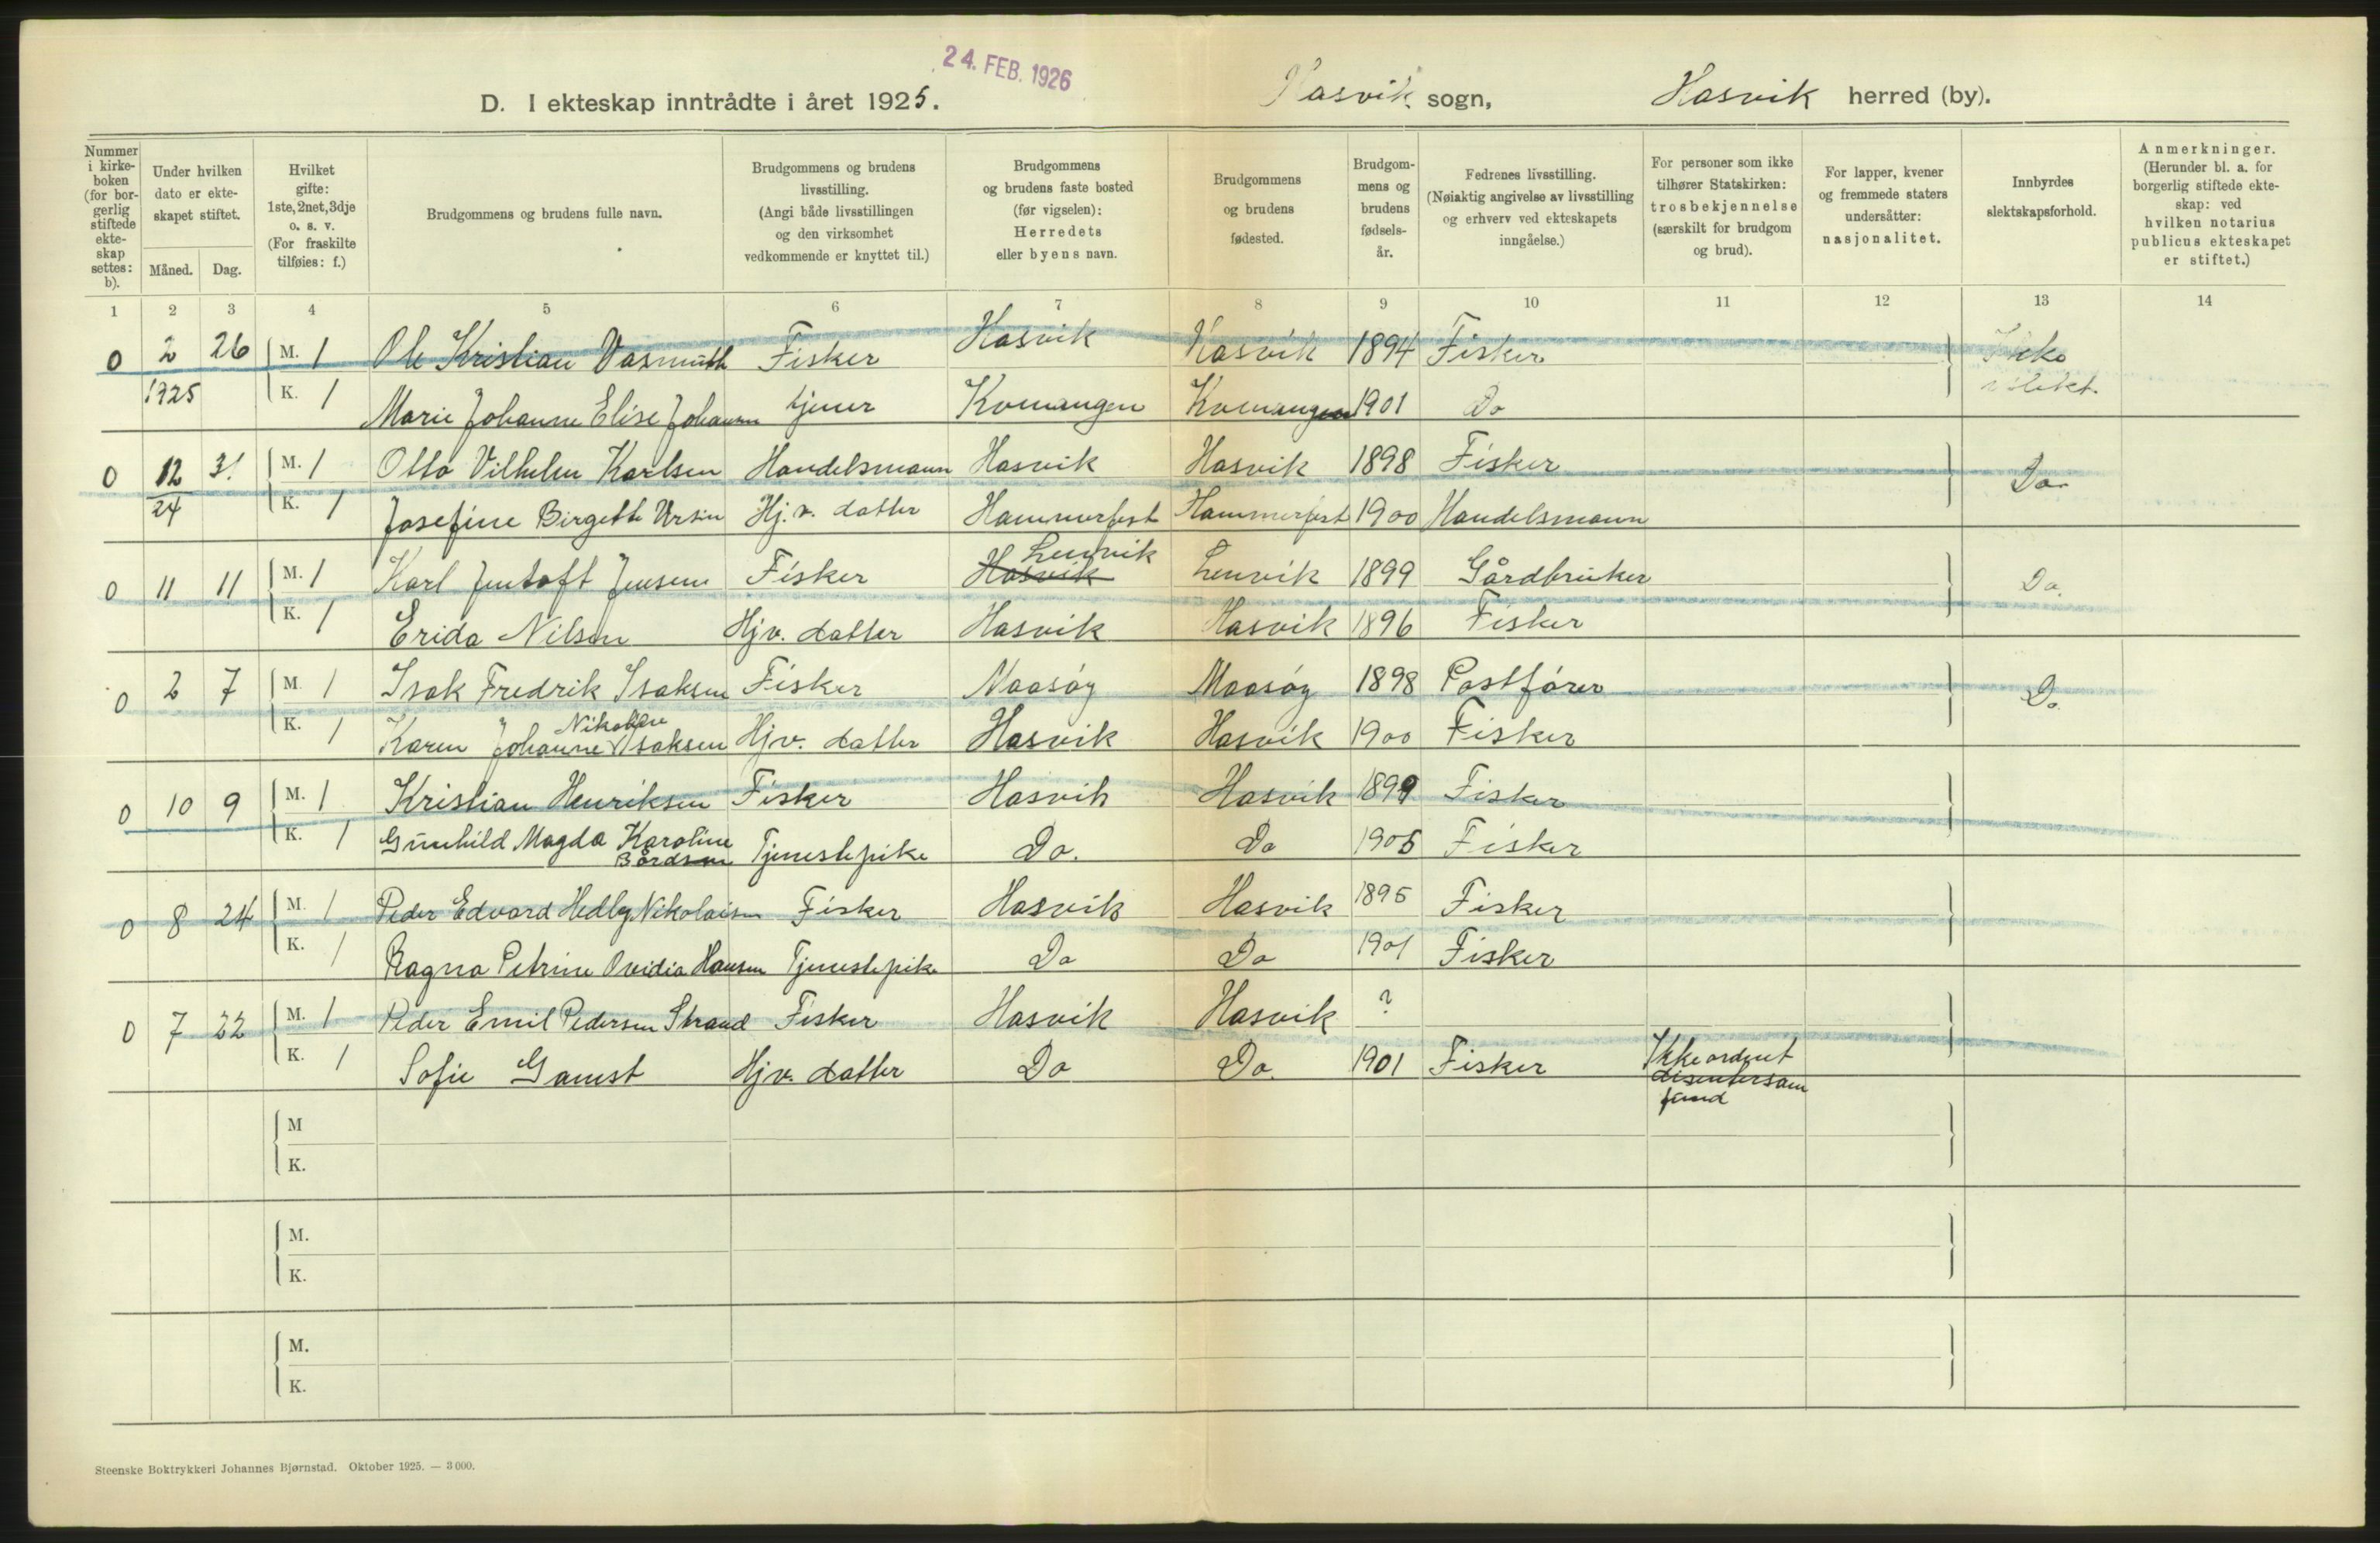 24. FEB. 1926
D. I ekteskap inntrådte i året 1925.
Hasvik sogn, Hasvik herred (by).
Nummer i kirke- boken (for bor- gerlig stiftede ekte- skap settes: b).
Under hvilken dato er ekte- skapet stiftet.
Måned. Dag.
Hvilket gifte: 1ste, 2net, 3dje o. s. v. (For fraskilte tilføies: f.)
Brudgommens og brudens fulle navn.
Brudgommens og brudens livsstilling. (Angi både livsstillingen og den virksomhet vedkommende er knyttet til.)
Brudgommens og brudens faste bosted (før vigselen): Herredets eller byens navn.
Brudgommens og brudens fødested.
Brudgom- mens og brudens fødsels- år.
Fedrenes livsstilling. (Nøiaktig angivelse av livsstilling og erhverv ved ekteskapets inngåelse.)
For personer som ikke tilhører Statskirken: trosbekjennelse (særskilt for brudgom og brud).
For lapper, kvener og fremmede staters undersåtter: nasjonalitet.
Innbyrdes slektskapsforhold.
Anmerkninger. (Herunder bl. a. for borgerlig stiftede ekte- skap: ved hvilken notarius publicus ekteskapet er stiftet.)
1 2 3 4 5 6 7 8 9 10 11 12 13 14
0 2 26 M. 1 Ole Kristian Vasmuth Fisker Hasvik Hasvik 1894 Fisker Ikke
1925 K. 1 Marie Johanne Elise Johansen tjener Kvenangen Kvenangen 1901 Do
0 12 31 M. 1 Otto Vilhelm Karlsen Handelsmann Hasvik Hasvik 1898 Fisker Do
24 K. 1 Josefine Birgette Ursin Hj. v. datter Hammerfest Hammerfest 1900 Handelsmann
Lenvik
0 11 11 M. 1 Karl Jentoft Jensen Fisker Hasvik Lenvik 1899 Gårdbruker Do.
K. 1 Erida Nilsen Hjv. datter Hasvik Hasvik 1896 Fisker
0 2 7 M. 1 Isak Fredrik Isaksen Fisker Maasøy Maasøy 1898 Postfører Do.
Nikoline
K. 1 Karen Johanne Isaksen Hjv. datter Hasvik Hasvik 1900 Fisker
0 10 9 M. 1 Kristian Henriksen Fisker Hasvik Hasvik 1899 Fisker
K. 1 Gunhild Magda Karoline Tjenestepike Do. Do 1905 Fisker
Bårdsen
0 8 24 M. 1 Peder Edvard Hedley Nikolaisen Fisker Hasvik Hasvik 1895 Fisker
K. 1 Ragna Petrine Ovidia Hansen Tjenestepike Do Do 1901 Fisker
0 7 22 M. 1 Peder Emil Pedersen Strand Fisker Hasvik Hasvik ?
K. 1 Sofie Gamst Hjv. datter Do Do. 1901 Fisker Ikke ordent
disentersam
fund
M
K.
M.
K.
M.
K.
Steenske Boktrykkeri Johannes Bjørnstad. Oktober 1925. — 3 000.